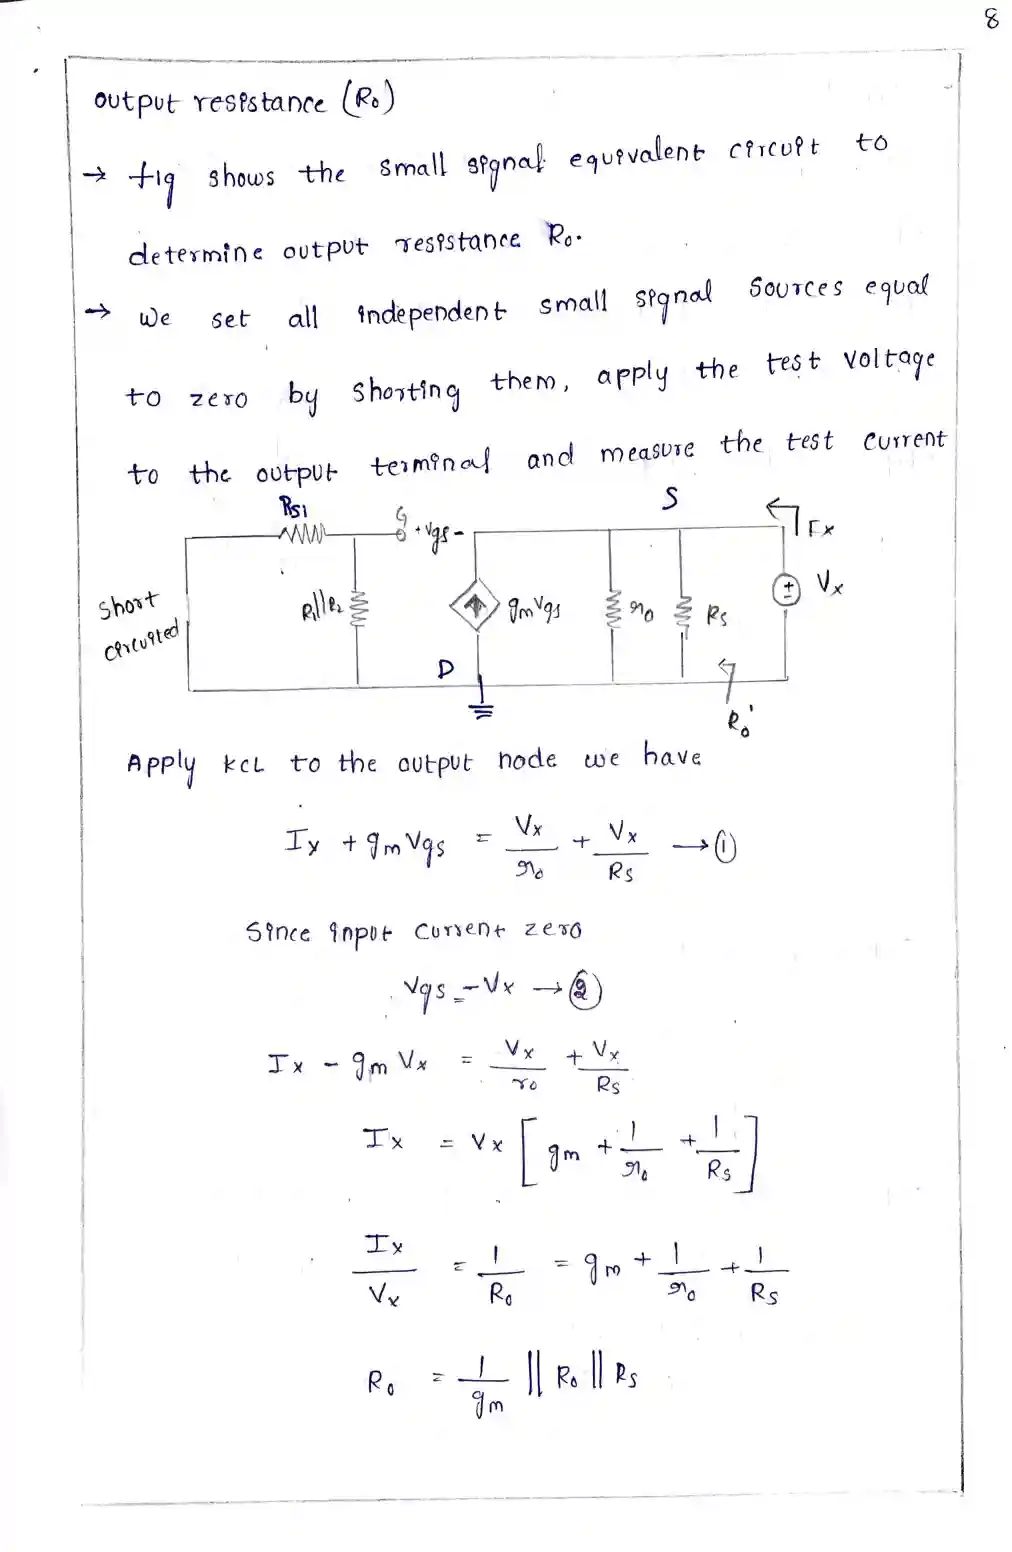 8
output resistance (Ro)
→ fig shows the small signal equivalent circuit to
determine output resistance Ro.
→ We set all independent small signal Sources equal
to zero by shorting them, apply the test voltage
to the output terminal and measure the test current
Rsi
G
+ Vgs -
S
Ix
short
circuited
R1||R2
gmVgs
ro
Rs
+
-
Vx
D
Ro'
Apply KCL to the output node we have
Ix + gmVgs = Vx/ro + Vx/Rs → ①
Since input Current zero
Vgs = -Vx → ②
Ix - gm Vx = Vx/ro + Vx/Rs
Ix = Vx [gm + 1/ro + 1/Rs]
Ix/Vx = 1/Ro = gm + 1/ro + 1/Rs
Ro = 1/gm || Ro || Rs